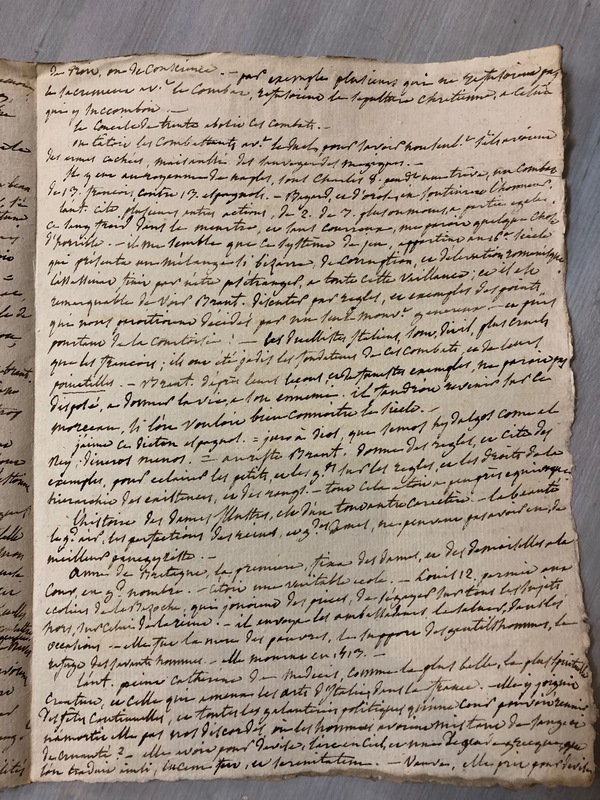 de Dieu, ou de Conscience. — par exemple plusieurs qui ne
le sacrement av.t le Combat, refusoient la sepulture chretienne, a celui
qui y succomboit. —
le Concile de trente abolit ces Combats. —
on tatoit les Combattants av.t le duel, pour savoir non seul.t s'ils avoient
des armes cachées, mais aussi des sauvegardes magiques. —
Il y eut au royaume de naples, sous Charles 8. une treve, un Combat
de 13. francois, contre 13. espagnols. — Bayard, et d'oroze en soutinrent l'honneur.
l'aut. cite plusieurs autres actions, de 2. de 3. plus ou moins, a partie egale.
ce sang froid dans le meurtre, et sans Courroux, me paroit quelque chose
d'horrible. — il me semble que ce systême de jeu, appartint au 16.e siècle
qui presenta un mélange si bizarre, de Corruption, et d'elevation romanesque
l'assassinat finit par naitre étranger, a toute cette vaillance; et il est
remarquable de voir Brant. discuter par regles, et exemples des points
qui nous paroitroient décidés par un seul mouv.t genereux — ce pris
pourtant de la Courtoisie! — les duellistes Italiens, sont, dit il, plus cruels
que les francois; ils ont été jadis les fondateurs de ces Combats, et de leurs
pointilles. — Brant. d'après leurs leçons et de funestes exemples, ne paroit pas
disposé, a donner la vie, a son ennemi. il faudroit revenir sur ce
morceau, si l'on vouloit bien connoitre le siecle. —
j'aime ce dicton espagnol. = juro à dios, que somos hydalgos como el
Rey, dineros menos. = au reste Brant. donne des regles, et cite des
exemples, pour eclairer les petits, et les g.ds sur les regles, et les droits de la
hierarchie des existences, et des rangs. — tout cela etoit a peu près equivoque
l'histoire des dames Illustres, est d'un tout autre caractère. — la beauté
le g.d air, les perfections des reines, et g.des Dames, ne peuvent pas avoir eu de
meilleur panegyriste. —
Anne de Bretagne, la premiere, tint des dames, et des damoiselles a la
Cour, en g.d nombre. — C'étoit une veritable ecole. — Louis 12, permit aux
ecoliers de la Bazoche, qui jouoient des pieces, de s'egayer sur tous les sujets
hors, sur celui de la reine! — il envoya les ambassadeurs la saluer, dans les
occasions — elle fut la mere des pauvres, le support des gentilshommes, le
refuge des savants hommes. — elle mourut en 1413. —
L'aut. peint Catherine de medicis, comme la plus belle, la plus spirituelle
Creature, et celle qui amena les arts d'Italie dans la france. — elle y joignit
des fetes continuelles, et toutes les galanteries politiques qu'une Cour peut reunir
n'amortit elle pas nos discordes, où les hommes avoient mis tant de sang et
de cruauté? — elle avoit pour devise, l'arc en Ciel, et un mot Grec, que
l'on traduit ainsi, lucem fert, et serenitatem. — Veuve, elle prit pour devise